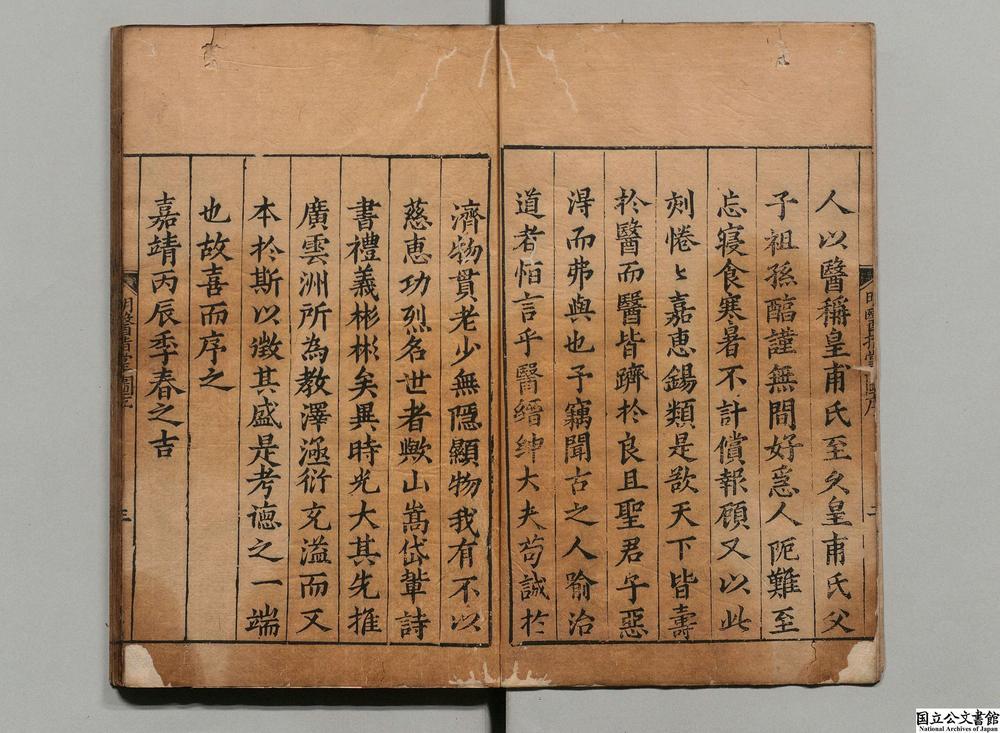 人以醫稱皇甫氏至久皇甫氏父
子祖孫醖謹無間好急人阨難至
忘寢食寒暑不計償報顧又以此
刻惓〻嘉惠錫類是欲天下皆壽
於醫而醫皆躋於良且聖君子惡
淂而弗與也予竊聞古之人喻治
道者恒言乎醫縉紳大夫苟誠於
濟物貫老少無隱顯物我有不以
慈惠功烈名世者歟山嵩岱輩詩
書禮義彬彬矣異時光大其先推
廣雲洲所為教澤滋衍充溢而又
本於斯以徵其盛是考德之一端
也故喜而序之
嘉靖丙辰季春之吉
三
国立公文書館
National Archives of Japan